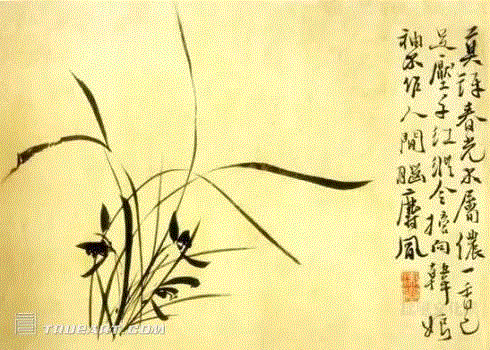 莫訝春光不屬儂一香已
足壓千红縱令摘向韓娘
袖不作人間腦麝風
TRUEART.COM